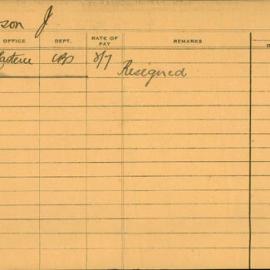 son J
OFFICE DEPT. RATE OF PAY REMARKS
8/7 Resigned